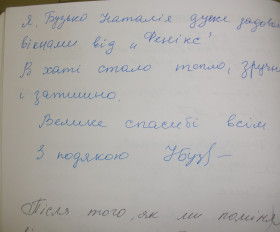 Я, Бузько Наталія дуже задовол
вікнами від „Фенікс"
В хаті стало тепло, зручн
і затишно.
Велике спасибі всім
З подякою
Після того, як ми поміня